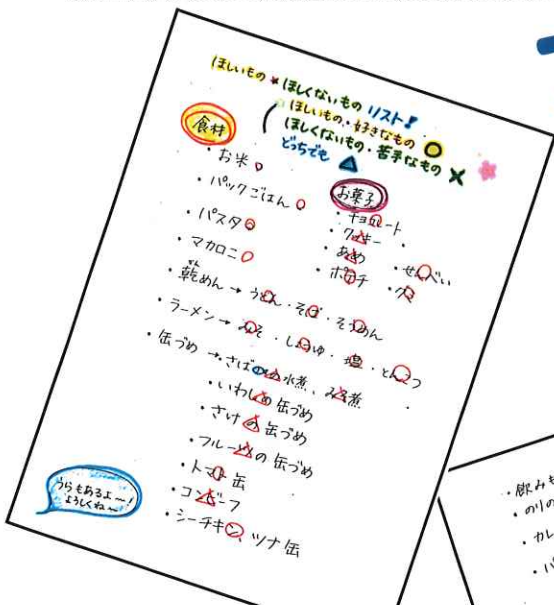 ほしいもの ★ ほしくないもの リスト!
ほしいもの・好きなもの ○
ほしくないもの・苦手なもの ×
どっちでも △
食材
・お米 ○
・パックごはん ○
・パスタ ○
・マカロニ ○
・乾めん → うどん・そば・そうめん
・ラーメン → みそ・しょうゆ・塩・とんこつ
・缶づめ → さばの水煮、みそ煮
・いわしの缶づめ
・さけの缶づめ
・フルーツの缶づめ
・トマト缶
・コンビーフ
・シーチキン、ツナ缶
お菓子
・チョコレート
・クッキー
・あめ
・せんべい
・ポテチ
・グミ
うらもあるよ〜!
よろしくね〜
・飲みも
・のりの
・カレ